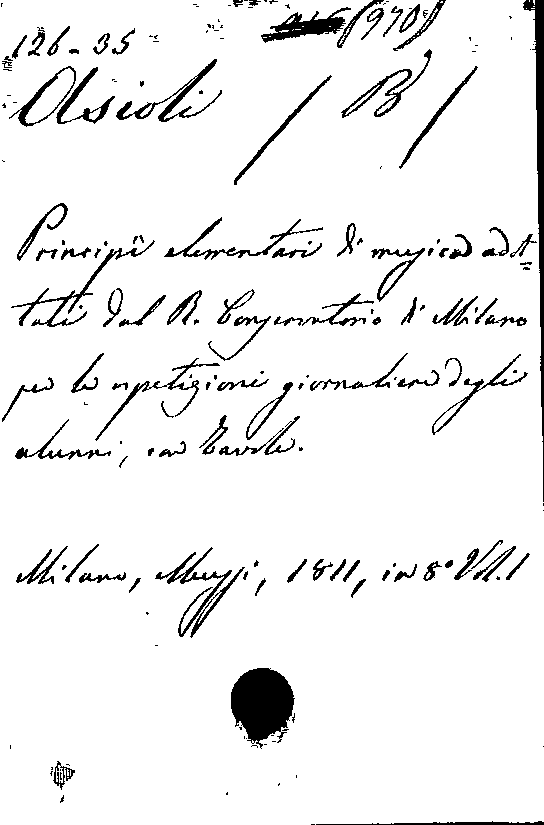 (970)
126-35
Asioli / B /
Principii elementari di musica adot=
tati dal R. Conservatorio di Milano
per le ripetizioni giornaliere degli
alunni, con Tavole.
Milano, Mussi, 1811, in 8° Vol. 1